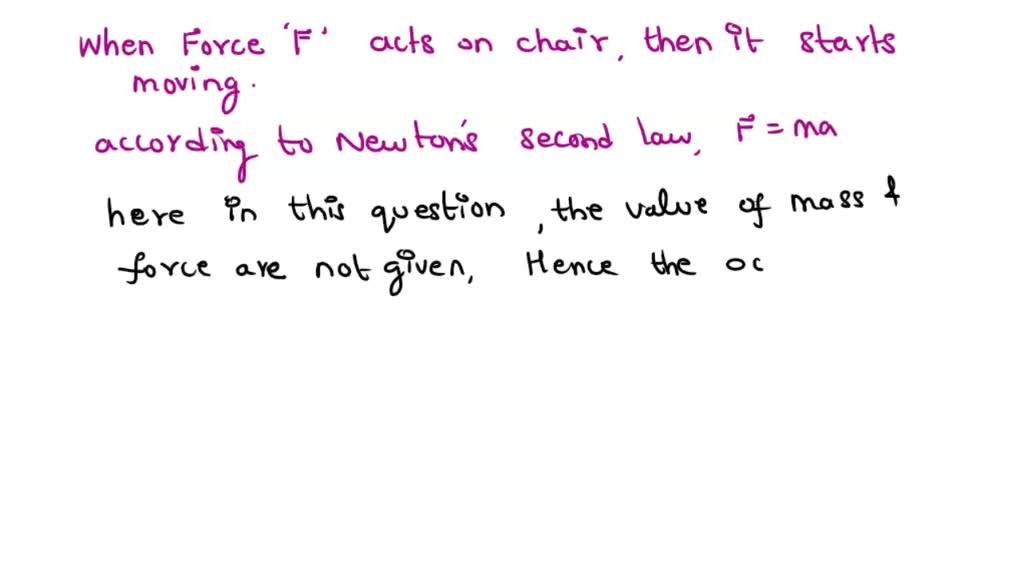 When Force 'F' acts on chair, then it starts
moving.
according to Newton's second law, F = ma
here in this question, the value of mass &
force are not given, Hence the